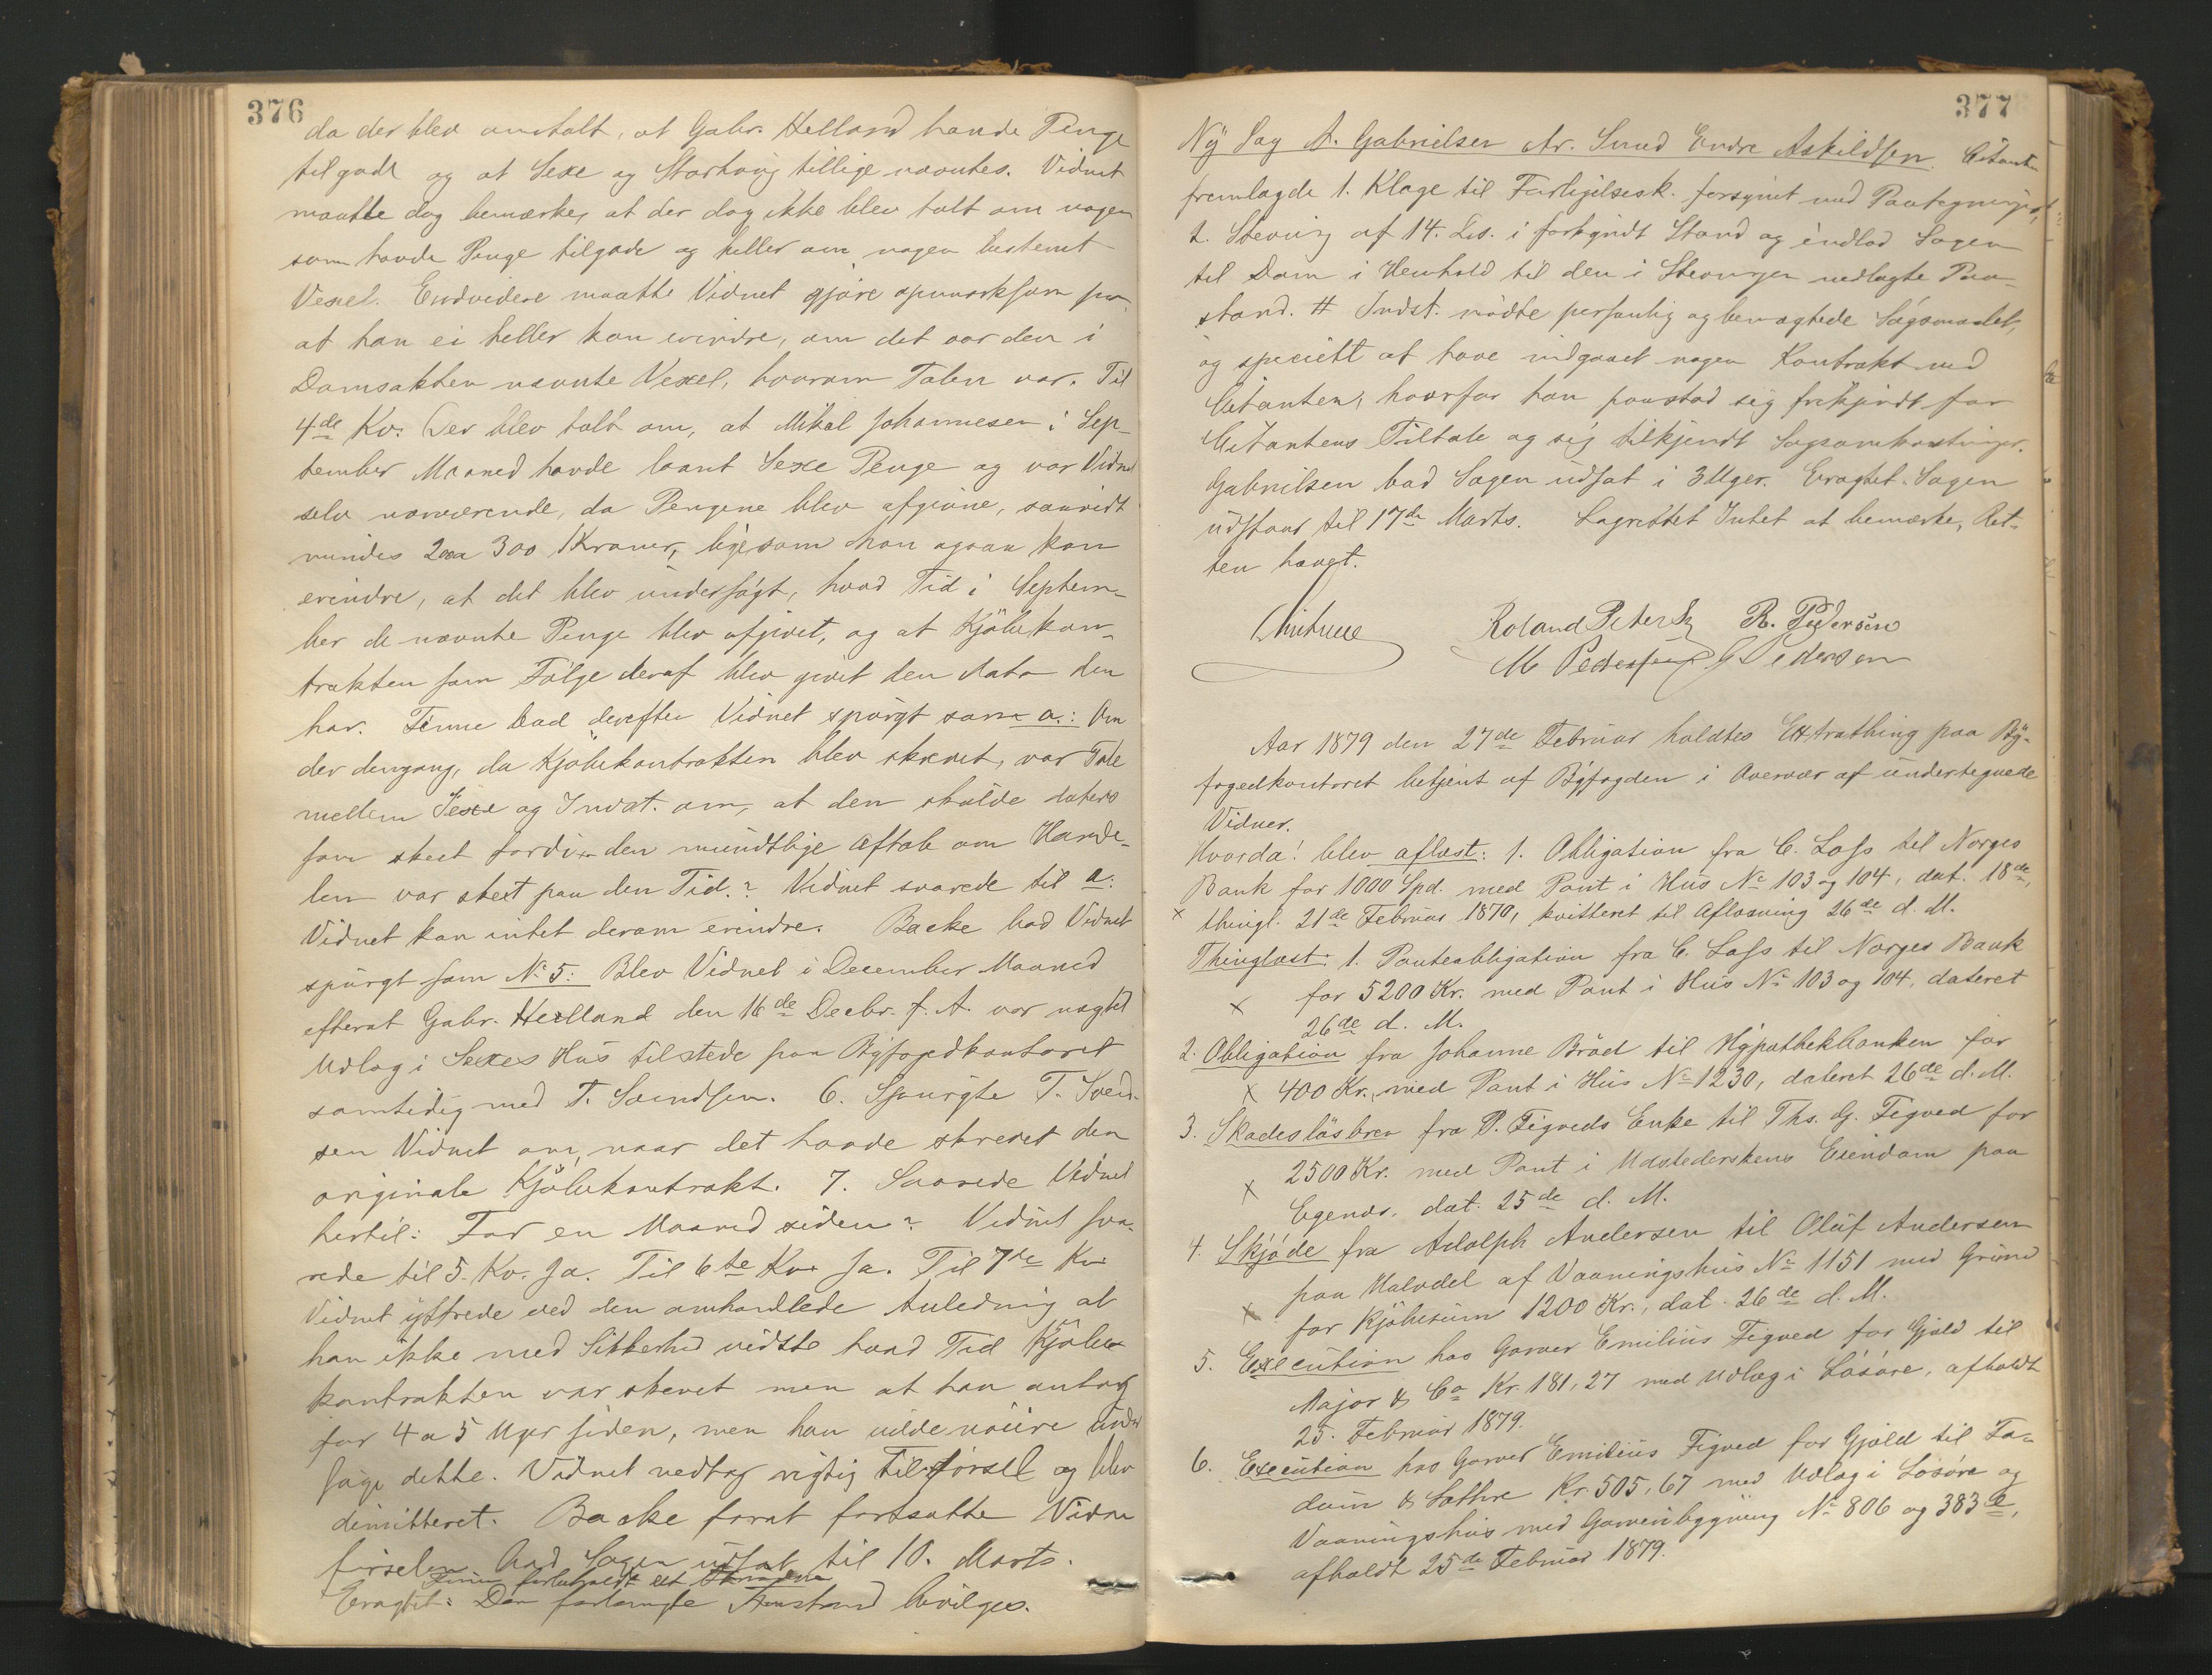 376
da der blev omtalt, at Gabr. Helland havde Penge
tilgode og at Sexe og Storhoug tillige nævntes. Vidnet
maatte dog bemærke, at der dog ikke blev talt om nogen
som havde Penge tilgode og heller om nogen bestemt
Vexel. Endvidere maatte Vidnet gjøre opmærksom paa
at han ei heller kan erindre, om det var den i
Domsakten nævnte Vexel, hvorom Talen var. Til
4de Kv. Der blev talt om, at Mikal Johannesen i Sep-
tember Maaned havde laant Sexe Penge og var Vidnet
selv nærværende, da Pengene blev afgivne, saavidt
mindes 2 a 300 Kroner, ligesom han ogsaa kan
erindre, at det blev undersøgt, hvad Tid i Septem-
ber de nævnte Penge blev afgivet, og at Kjøbekon-
trakten som Følge deraf blev givet den Dato den
har. Finne bad derefter Vidnet spurgt som a.: Om
der dengang, da Kjøbekontrakten blev skrevet, var Tale
mellem Sexe og Indst. om, at den skulde dateres
som skeet fordi den mundtlige Aftale om Hande-
len var skeet paa den Tid? Vidnet svarede til a:
Vidnet kan intet derom erindre. Backe bad Vidnet
spurgt som No 5: Blev Vidnet i December Maaned
efterat Gabr. Helland den 16de Decbr. f. A. var nægtet
Udlæg i Sexes Hus tilstede paa Byfogedkontoret
samtidig med T. Svendsen. 6. Spurgte T. Svend-
sen Vidnet om, naar det havde skrevet den
originale Kjøbekontrakt. 7. Svarede Vidnet
hertil: For en Maaned siden? Vidnet sva-
rede til 5. Kv. Ja. Til 6te Kv. Ja. Til 7de Kv.
Vidnet yttrede ved den omhandlede Anledning at
han ikke med Sikkerhed vidste hvad Tid Kjøbe-
kontrakten var skrevet men at han antog
for 4 a 5 Uger siden, men han vilde nøiere under
søge dette. Vidnet vedtog rigtig Tilførsel og blev
dimitteret. Backe forat fortsætte Vidne
førselen bad Sagen udsat til 10. Marts.
Finne forbeholdt sit
Eragtet: Den forlangte Anstand bevilges.
377
Ny Sag A. Gabrielsen Ctr. Smed Endre Askildsen. Citanten
fremlagde 1. Klage til Forligelsesk. forsynet med Paategninger,
2. Stevning af 14. Ds. i forkyndt Stand og indlod Sagen
til Dom i Henhold til den i Stevningen nedlagte Paa-
stand. # Indst. mødte personlig og benægtede Søgsmaalet,
og specielt at have indgaaet nogen Kontrakt med
Citanten, hvorfor han paastod sig frikjendt for
Citantens Tiltale og sig tilkjendt Sagsomkostninger.
Gabrielsen bad Sagen udsat i 3 Uger. Eragtet. Sagen
udstaar til 17de Marts. Lagrettet Intet at bemærke, Ret-
ten hævet.
Roland Peters R. Pedersen
M Pedersen G Pedersen
Aar 1879 den 27de Februar holdtes Extrathing paa By-
fogedkontoret betjent af Byfogden i Overvær af undertegnede
Vidner.
Hvorda! blev aflæst: 1. Obligation fra C. Lass til Norges
Bank for 1000 Spd. med Pant i Hus No 103 og 104, dat. 18de,
x thingl. 21de Februar 1870, kvitteret til Aflæsning 26de d. M.
Thinglæst: 1. Panteobligation fra C. Lass til Norges Bank
x for 5200 Kr. med Pant i Hus No 103 og 104, dateret
26de d. M.
2. Obligation fra Johanne Brød til Hypothekbanken for
x 400 Kr. med Pant i Hus No 1230, dateret 26de d. M.
3. Skadesløsbrev fra P. Figveds Enke til Ths. G. Figved for
x 2500 Kr. med Pant i Udstederskens Eiendom paa
Egenæs, dat. 25de d. M.
4. Skjøde fra Adolph Andersen til Oluf Andersen
paa Halvdel af Vaaningshus No 1151 med Grund
x for Kjøbesum 1200 Kr., dat. 26de d. M.
5. Execution hos Garver Emilius Figved for Gjæld til
Major & Co Kr. 181,27 med Udlæg i Løsøre, afholdt
25. Februar 1879.
6. Execution hos Garver Emilius Figved for Gjæld til Fa-
dum & Løthre Kr. 505,67 med Udlæg i Løsøre og
Vaaningshus med Garveribygning No 806 og 383 e,
afholdt 25de Februar 1879.